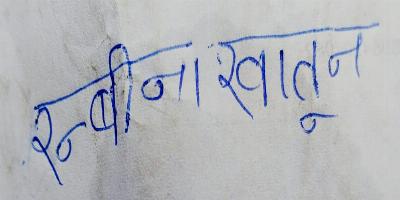 रूबीना खातून